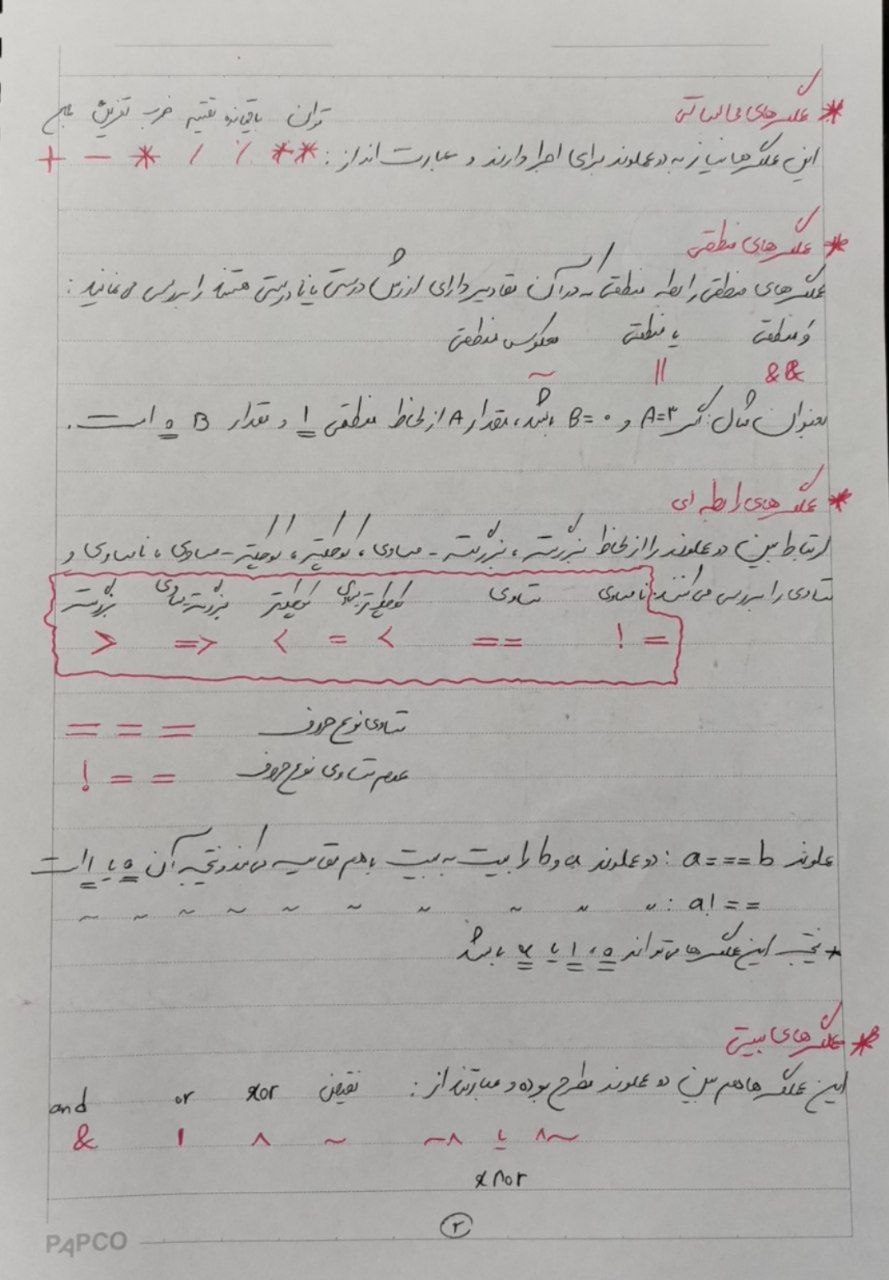 * عملگرهای محاسباتی
توان باقیمانده تقسیم ضرب تفریق جمع
این عملگرها نیاز به دو عملوند برای اجرا دارند و عبارت‌اند از: ** / / * − +
* عملگرهای منطقی
عملگرهای منطقی رابطه منطقی که در آن مقادیر دارای ارزش درستی یا نادرستی هستند را بررسی می‌نمایند:
و منطقی یا منطقی معکوس منطقی
&& || ~
بعنوان مثال اگر A=3 و B=0 باشد، مقدار A از لحاظ منطقی 1 و مقدار B 0 است.
* عملگرهای رابطه‌ای
ارتباط بین دو عملوند را از لحاظ بزرگتر، بزرگتر-مساوی، کوچکتر، کوچکتر-مساوی، نامساوی و
تساوی را بررسی می‌کنند: نامساوی تساوی کوچکتر مساوی کوچکتر بزرگتر مساوی بزرگتر
> => < = < == !=
=== تساوی نوع حروف
!== عدم تساوی نوع حروف
عملوند a===b : دو عملوند a و b را بیت به بیت با هم مقایسه می‌کند و نتیجه آن 0 یا 1 است
a!== : " " " ~ ~ ~ ~ ~ ~ ~
* نتیجه این عملگرها می‌تواند 0، 1 یا x باشد
* عملگرهای بیتی
این عملگرها هم بین دو عملوند مطرح بوده و عبارتند از: نقیض xor or and
& | ^ ~ ~^ یا ^~
xnor
2
PAPCO